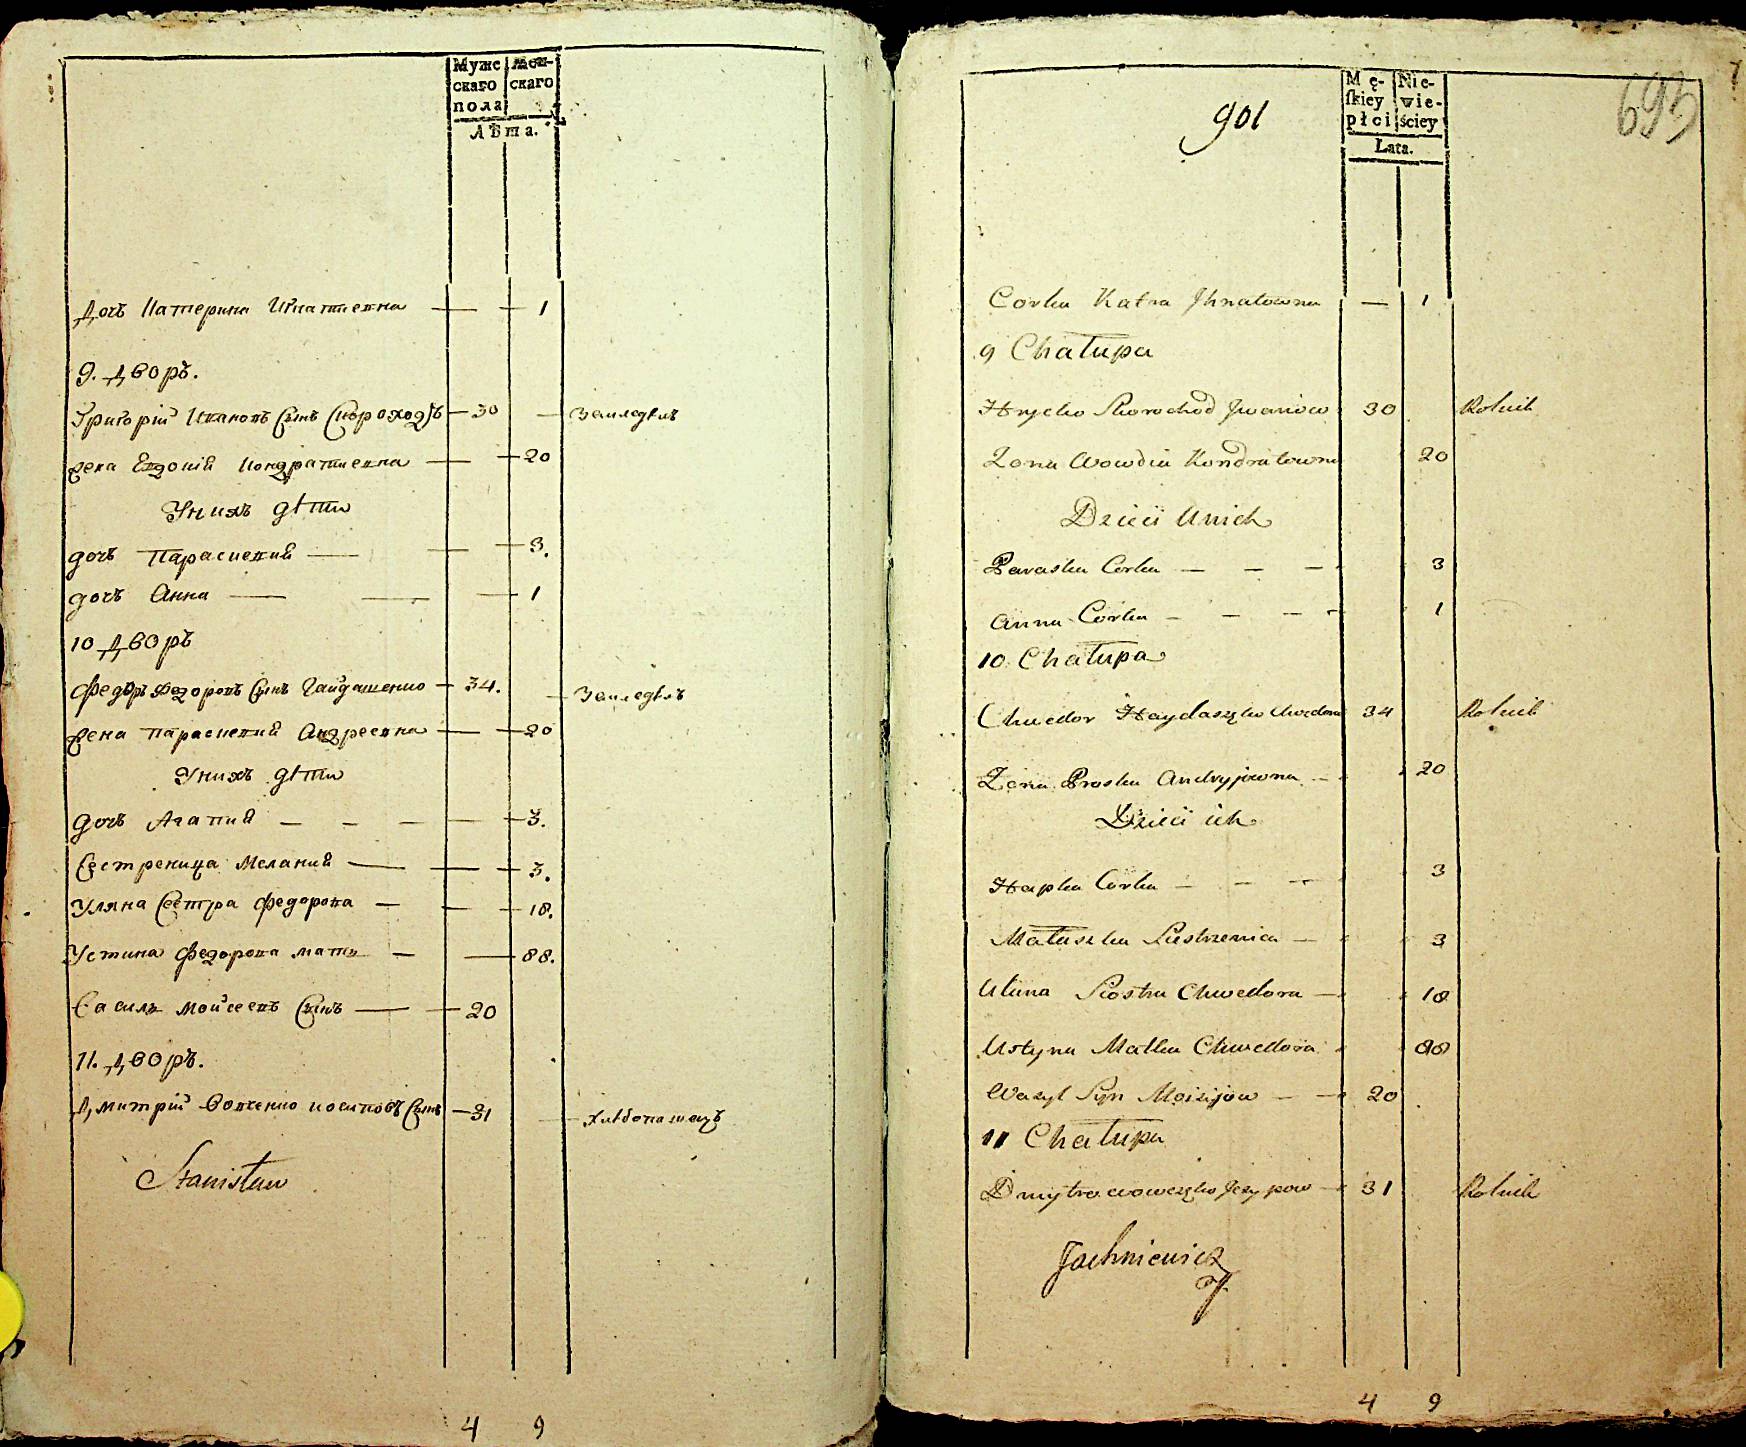 Муже
скаго
пола
Жен-
скаго
Лѣта.
Дочь Катерина Игнатиевна — — 1
9. Дворъ.
Григорій Ивановъ Сынъ Скороходъ — 30 — Земледѣлъ
жена Евдокія Кондратиевна — — 20
У нихъ дѣти
дочь Параскевия — — 3.
дочь Анна — — — 1
10 Дворъ
Федоръ Федоровъ Сынъ Гайдашенко — 34. — Земледѣлъ
жена Параскевия Андреевна — — 20
У нихъ дѣти
дочь Агапия — — — — 3.
Сестреница Мелания — — — 3.
Уляна Сестра Федорова — — — 18.
Устина Федорова мать — — 88.
Василь Мойсеевъ Сынъ — — 20
11. Дворъ.
Дмитрій Вовченко иосиповъ Сынъ — 31 — Хлѣбопашецъ
Stanisław
4 9
901
693
Mę-
ſkiey
płci
Nie-
wie-
ściey
Lata.
Corka Katra Jhnatowna — 1
9 Chałupa
Hrycko Skorochod Jwanow 30 Rolnik
Zona Wowdia Kondratowna 20
Dzieci Unich
Paraska Corka — — — 3
Anna Corka — — — 1
10. Chałupa
Chwedor Haydaszko Chwedorow 34 Rolnik
Zona Proska Andryjowna — 20
Dzieci ich
Hapka Corka — — — 3
Małaszka Siestrzenica — 3
Ulana Siostra Chwedora — 18
Ustyna Matka Chwedora 88
Wasyl Syn Moisijow — — 20
11 Chałupa
Dmytro Wowczko Jozypow — 31 Rolnik
Jachniewicz
4 9